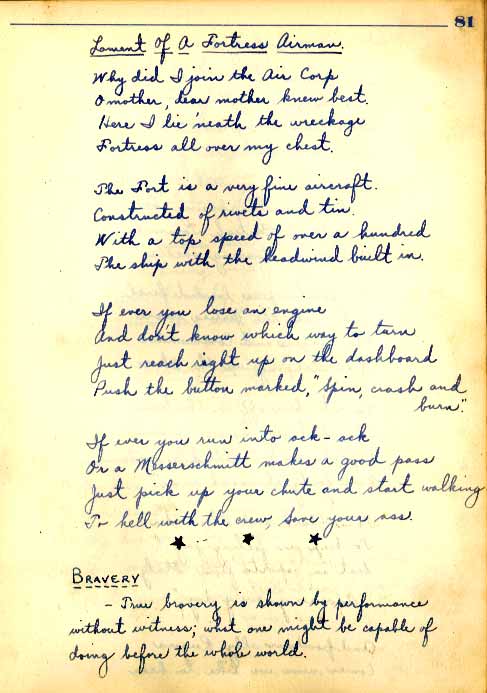 81
Lament Of A Fortress Airman.
Why did I join the Air Corp
O mother, dear mother knew best.
Here I lie 'neath the wreckage
Fortress all over my chest.
The Fort is a very fine aircraft.
Constructed of rivets and tin.
With a top speed of over a hundred
The ship with the headwind built in.
If ever you lose an engine
And don't know which way to turn
Just reach right up on the dashboard
Push the button marked, "Spin, crash and
burn".
If ever you run into ack-ack
Or a Messerschmitt makes a good pass
Just pick up your chute and start walking
To hell with the crew, save your ass.
BRAVERY
- True bravery is shown by performance
without witness; what one might be capable of
doing before the whole world.